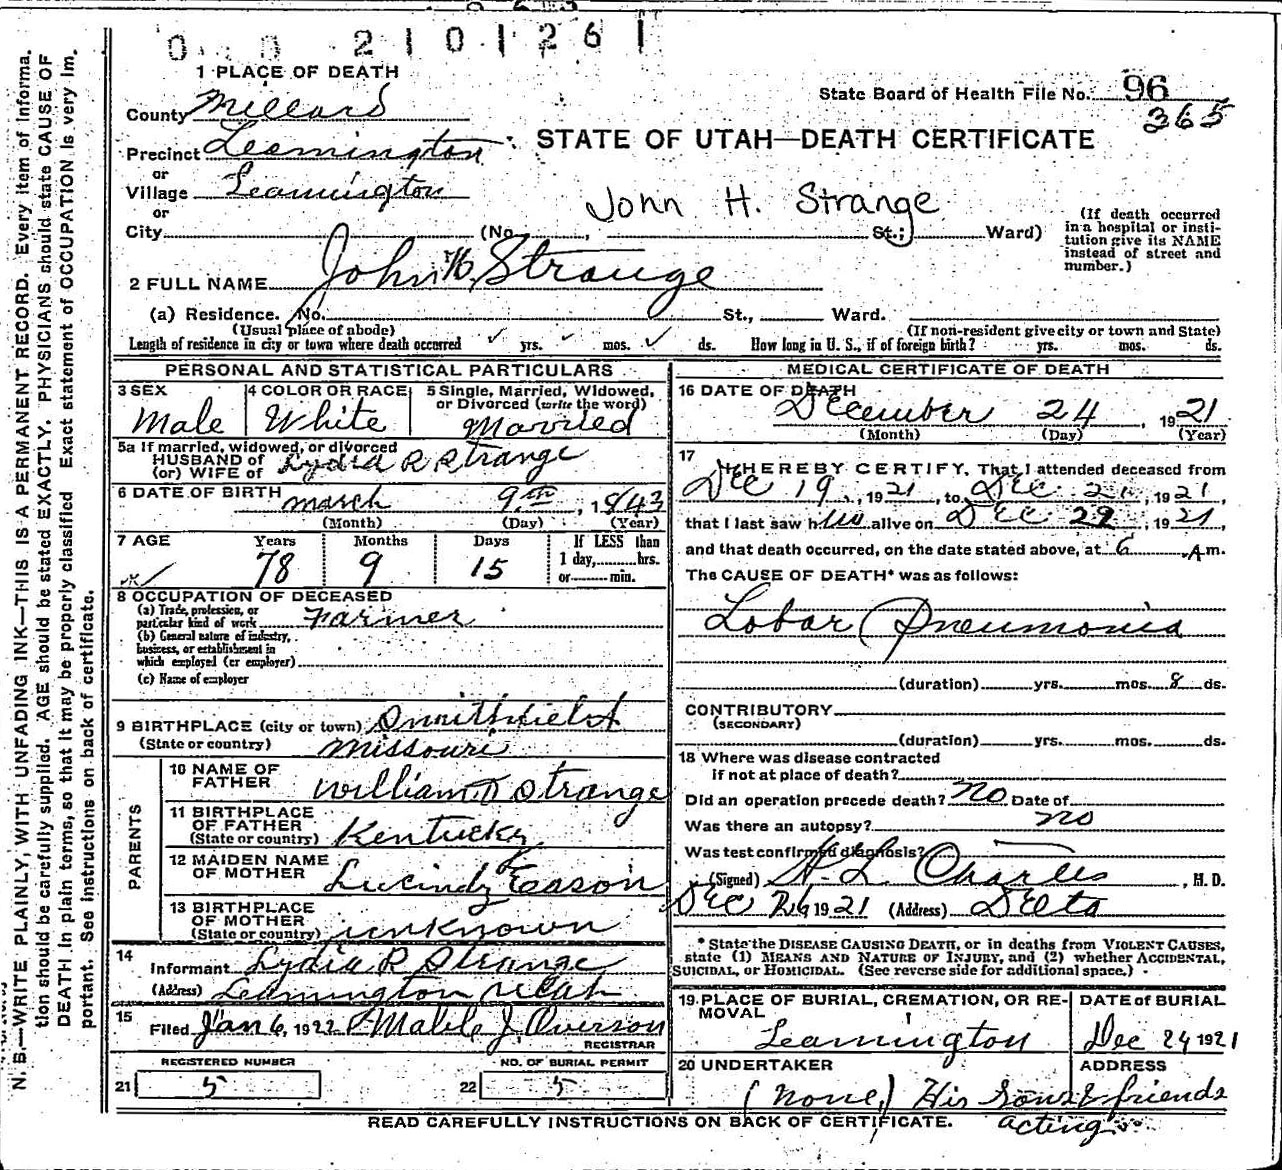 0 0 2 1 0 1 2 6 1
1 PLACE OF DEATH
State Board of Health File No. 96
365
County Millard
STATE OF UTAH—DEATH CERTIFICATE
Precinct Leamington
or
Village Leamington
or
John H. Strange
City (No. , St.; Ward)
(If death occurred in a hospital or institution give its NAME instead of street and number.)
2 FULL NAME John H. Strange
(a) Residence. No. St., Ward.
(Usual place of abode) (If non-resident give city or town and State)
Length of residence in city or town where death occurred ✓ yrs. ✓ mos. ✓ ds. How long in U. S., if of foreign birth? yrs. mos. ds.
PERSONAL AND STATISTICAL PARTICULARS
3 SEX Male
4 COLOR OR RACE White
5 Single, Married, Widowed, or Divorced (write the word) Married
5a If married, widowed, or divorced
HUSBAND of
(or) WIFE of Lydia R Strange
6 DATE OF BIRTH March 9th, 1843
(Month) (Day) (Year)
7 AGE Years Months Days If LESS than
78 9 15 1 day, hrs.
or min.
8 OCCUPATION OF DECEASED
(a) Trade, profession, or
particular kind of work Farmer
(b) General nature of industry,
business, or establishment in
which employed (or employer)
(c) Name of employer
9 BIRTHPLACE (city or town)
(State or country) Missouri
PARENTS
10 NAME OF FATHER William Strange
11 BIRTHPLACE OF FATHER
(State or country) Kentucky
12 MAIDEN NAME OF MOTHER Lucindy Eason
13 BIRTHPLACE OF MOTHER
(State or country) unknown
14 Informant Lydia R Strange
(Address) Leamington Utah
15 Filed Jan 6, 1922 Mable J. Overson
REGISTRAR
REGISTERED NUMBER NO. OF BURIAL PERMIT
21 5 22 5
MEDICAL CERTIFICATE OF DEATH
16 DATE OF DEATH
December 24, 1921
(Month) (Day) (Year)
17 I HEREBY CERTIFY, That I attended deceased from
Dec 19, 1921, to Dec 21, 1921,
that I last saw him alive on Dec 22, 1921,
and that death occurred, on the date stated above, at 6 A m.
The CAUSE OF DEATH* was as follows:
Lobar Pneumonia
(duration) yrs. mos. 8 ds.
CONTRIBUTORY
(SECONDARY)
(duration) yrs. mos. ds.
18 Where was disease contracted
if not at place of death?
Did an operation precede death? no Date of
Was there an autopsy? no
Was test confirmed diagnosis?
(Signed) H. L. Charles, M. D.
Dec 26 1921 (Address) Delta
* State the DISEASE CAUSING DEATH, or in deaths from VIOLENT CAUSES,
state (1) MEANS AND NATURE OF INJURY, and (2) whether ACCIDENTAL,
SUICIDAL, or HOMICIDAL. (See reverse side for additional space.)
19 PLACE OF BURIAL, CREMATION, OR REMOVAL
Leamington
DATE of BURIAL
Dec 24 1921
20 UNDERTAKER ADDRESS
(None) His Sons & friends
acting
READ CAREFULLY INSTRUCTIONS ON BACK OF CERTIFICATE.
N. B.—WRITE PLAINLY, WITH UNFADING INK—THIS IS A PERMANENT RECORD. Every item of informa-
tion should be carefully supplied. AGE should be stated EXACTLY. PHYSICIANS should state CAUSE OF
DEATH in plain terms, so that it may be properly classified. Exact statement of OCCUPATION is very im-
portant. See instructions on back of certificate.